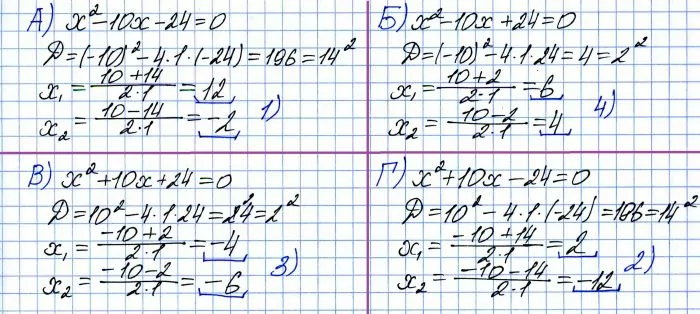 А) x²-10x-24=0
D=(-10)²-4·1·(-24)=196=14²
x₁=(10+14)/(2·1)=12
x₂=(10-14)/(2·1)=-2 1)
Б) x²-10x+24=0
D=(-10)²-4·1·24=4=2²
x₁=(10+2)/(2·1)=6
x₂=(10-2)/(2·1)=4 4)
В) x²+10x+24=0
D=10²-4·1·24=4=2²
x₁=(-10+2)/(2·1)=-4
x₂=(-10-2)/(2·1)=-6 3)
Г) x²+10x-24=0
D=10²-4·1·(-24)=196=14²
x₁=(-10+14)/(2·1)=2
x₂=(-10-14)/(2·1)=-12 2)